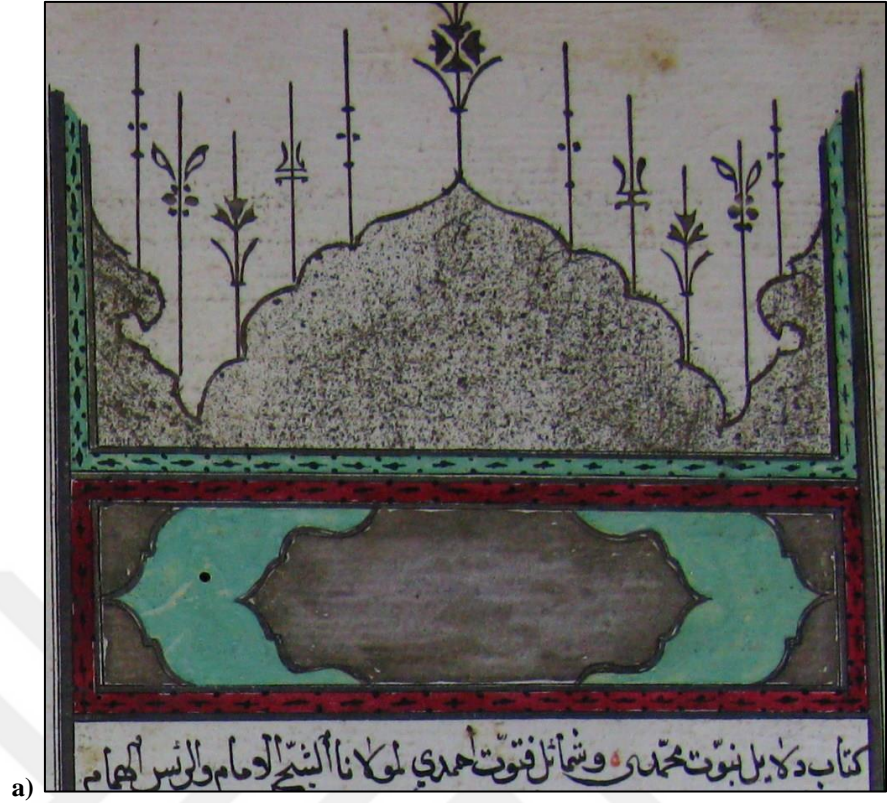 كتاب دلايل نبوّت محمّدى وشمائل فتوّت احمدي لمولانا الشيخ الامام والرئس الهمام
a)